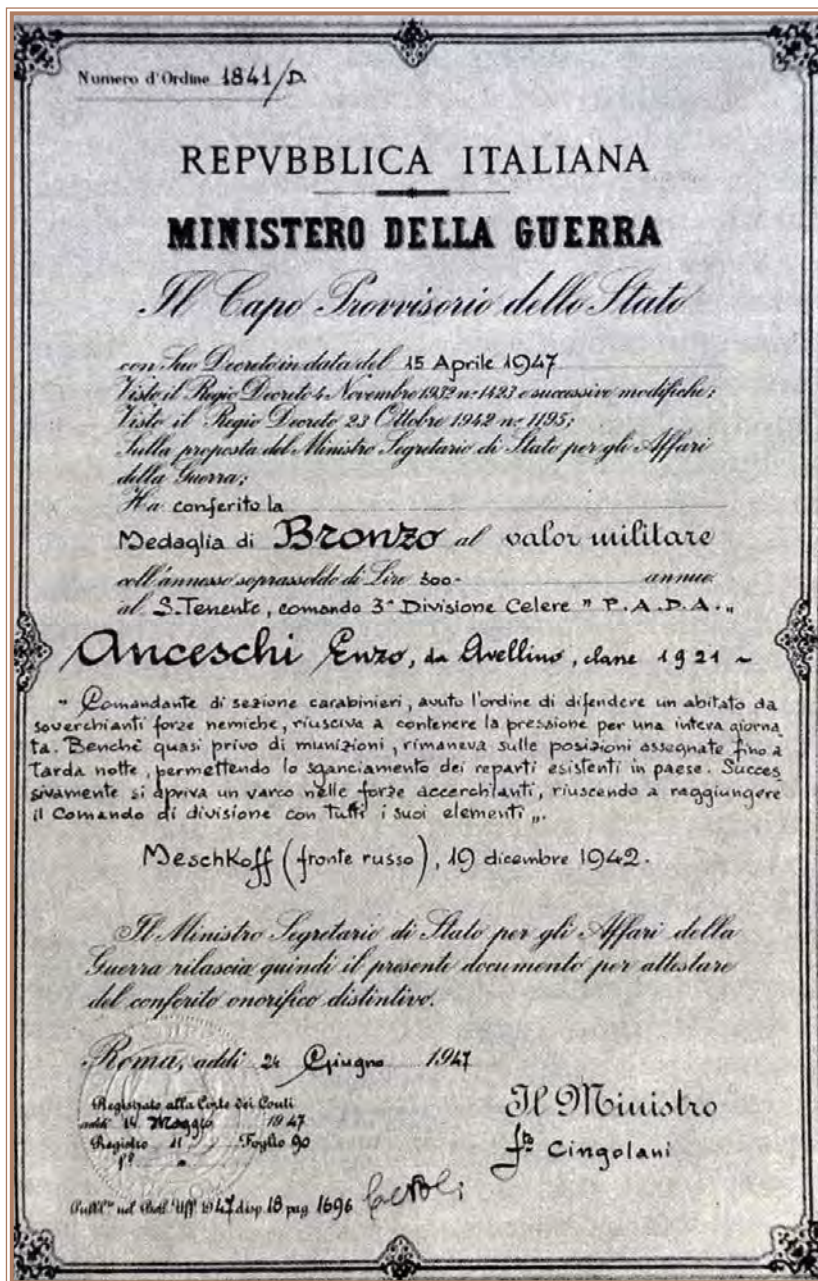 Numero d'Ordine 1841/D.
REPVBBLICA ITALIANA
MINISTERO DELLA GUERRA
Il Capo Provvisorio dello Stato
con Suo Decreto in data del 15 Aprile 1947
Visto il Regio Decreto 4 Novembre 1932 nº 1423 e successive modifiche;
Visto il Regio Decreto 23 Ottobre 1942 nº 1195;
Sulla proposta del Ministro Segretario di Stato per gli Affari
della Guerra;
Ha conferito la
Medaglia di Bronzo al valor militare
coll'annesso soprassoldo di Lire 300- annue
al S.Tenente, comando 3ª Divisione Celere " P.A.D.A. „
Anceschi Enzo, da Avellino, classe 1921 ~
" Comandante di sezione carabinieri, avuto l'ordine di difendere un abitato da
soverchianti forze nemiche, riusciva a contenere la pressione per una intera giorna
ta. Benchè quasi privo di munizioni, rimaneva sulle posizioni assegnate fino a
tarda notte, permettendo lo sganciamento dei reparti esistenti in paese. Succes
sivamente si apriva un varco nelle forze accerchianti, riuscendo a raggiungere
il Comando di divisione con tutti i suoi elementi „.
Meschkoff (fronte russo), 19 dicembre 1942.
Il Ministro Segretario di Stato per gli Affari della
Guerra rilascia quindi il presente documento per attestare
del conferito onorifico distintivo.
Roma, addì 24 Giugno 1947
Registrato alla Corte dei Conti
addì 14 Maggio 1947
Registro 11 Foglio 90
Il Ministro
fto Cingolani
Pubbl.to nel Boll. Uff. 1947 disp. 18 pag. 1696